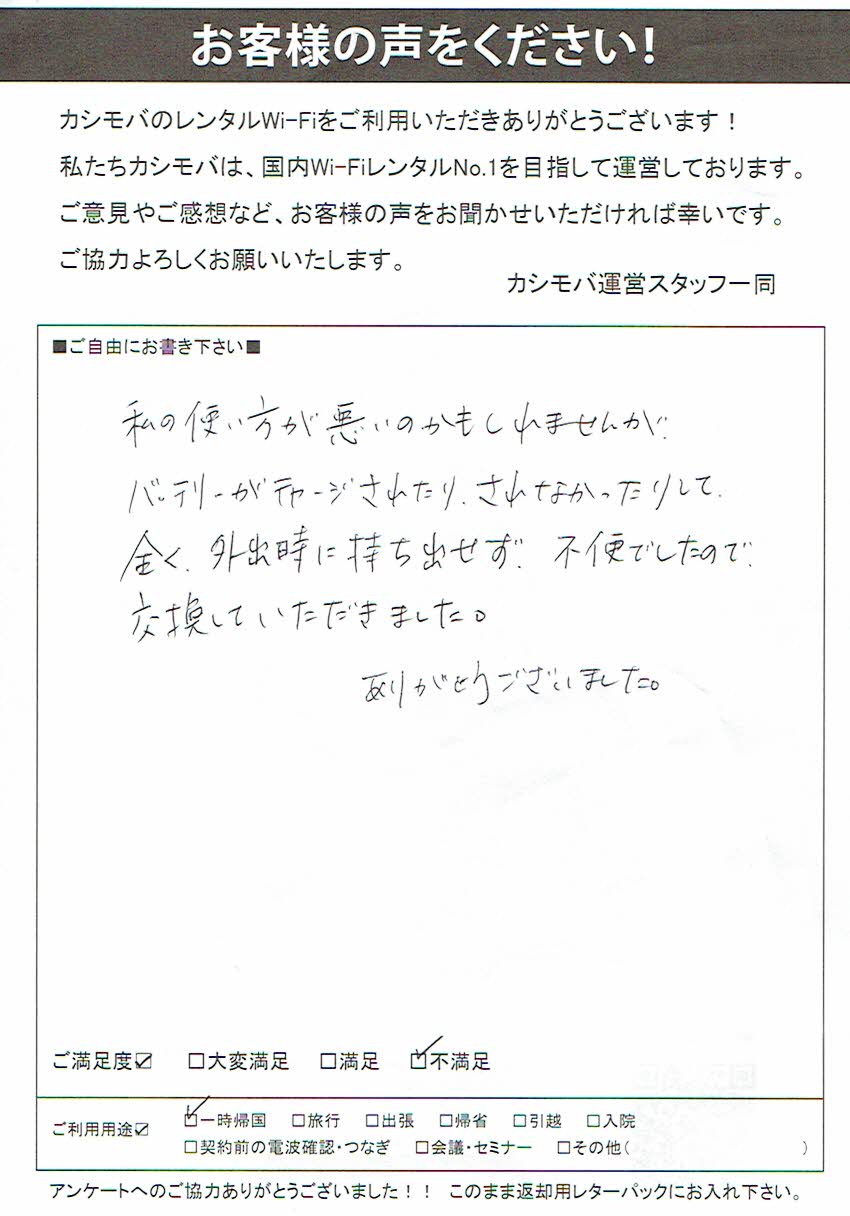 お客様の声をください!
カシモバのレンタルWi-Fiをご利用いただきありがとうございます!
私たちカシモバは、国内Wi-FiレンタルNo.1を目指して運営しております。
ご意見やご感想など、お客様の声をお聞かせいただければ幸いです。
ご協力よろしくお願いいたします。
カシモバ運営スタッフ一同
■ご自由にお書き下さい■
私の使い方が悪いのかもしれませんが、
バッテリーがチャージされたり、されなかったりして、
全く、外出時に持ち出せず、不便でしたので、
交換していただきました。
ありがとうございました。
ご満足度☑ □大変満足 □満足 ☑不満足
ご利用用途☑ ☑一時帰国 □旅行 □出張 □帰省 □引越 □入院
□契約前の電波確認・つなぎ □会議・セミナー □その他( )
アンケートへのご協力ありがとうございました!! このまま返却用レターパックにお入れ下さい。